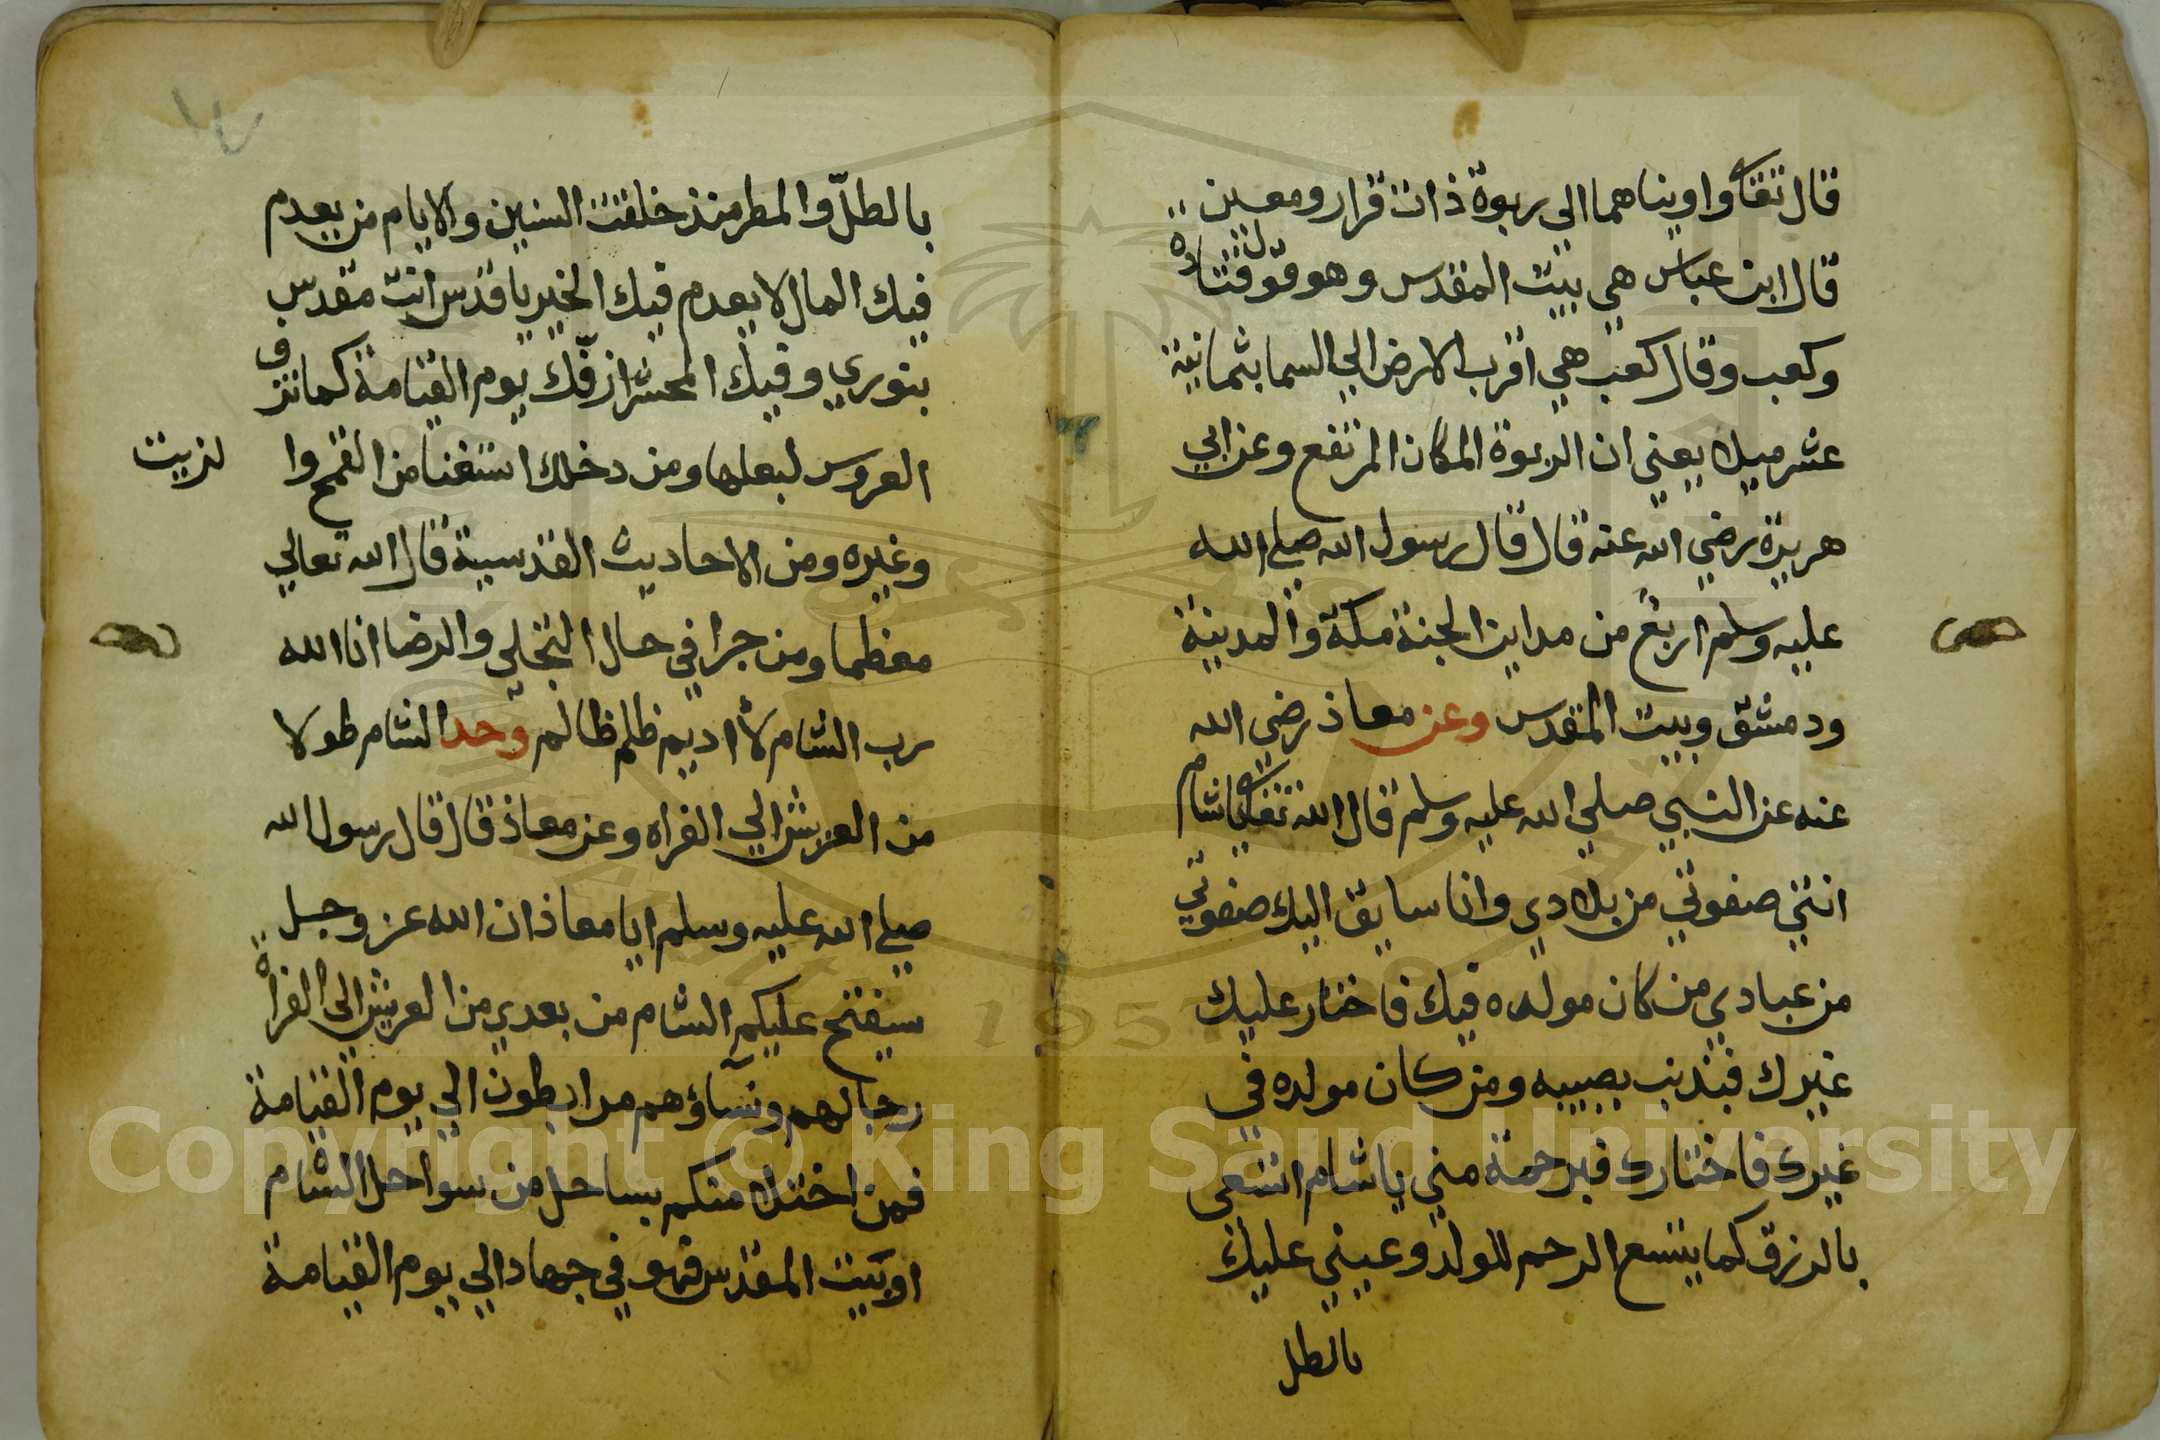 قال تعالى واويناهما الى ربوة ذات قرار ومعين
قال ابن عباس هي بيت المقدس وهو قول قتاده
وكعب وقال كعب هي اقرب الارض الي السما بثمانية
عشر ميلا يعني ان الربوة المكان المرتفع وعن ابي
هريرة رضي الله عنه قال قال رسول الله صلي الله
عليه وسلم اربع من مداين الجنة مكة والمدينة
ودمشق وبيت المقدس وعن معاذ رضي الله
عنه عن النبي صلي الله عليه وسلم قال الله تعالى ياشام
انتي صفوتي من بلادي وانا سايق اليك صفوتي
من عبادي من كان مولده فيك فاختار عليك
غيرك فبذنب يصيبه ومن كان مولده في
غيرك فاختارك فبرحمة مني ياشام اتسعي
بالرزق كما يتسع الرحم للولد وعيني عليك
بالطل
بالطل والمطر منذ خلقت السنين والايام من يعدم
فيك المال لا يعدم فيك الخير ياقدس انت مقدس
بنوري وفيك المحشر ازفك يوم القيامة كما تزف
العروس لبعلها ومن دخلك استغنا من القمح وا
لزيت
وغيره ومن الاحاديث القدسية قال الله تعالي
معظما ومن جرا في حال التجلي والرضا انا الله
رب الشام لا اديم ظلم ظالم وحد الشام طولا
من العريش الي الفراه وعن معاذ قال قال رسول الله
صلي الله عليه وسلم ايا معاذ ان الله عز وجل
سيفتح عليكم الشام من بعدي من العريش الى الفراة
رجالهم ونسآؤهم مرابطون الي يوم القيامة
فمن اختار منكم بساحل من سواحل الشام
او بيت المقدس فهو في جهاد الي يوم القيامة
١٧
Copyright © King Saud University
1957